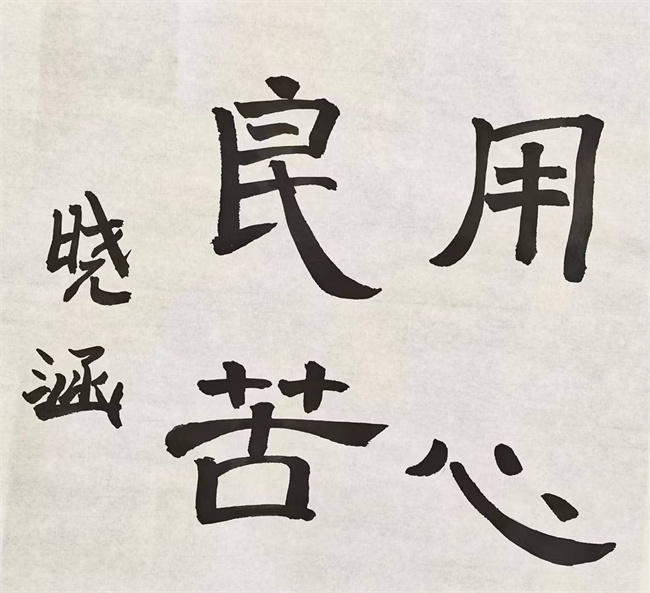 用心
良苦
晓涵